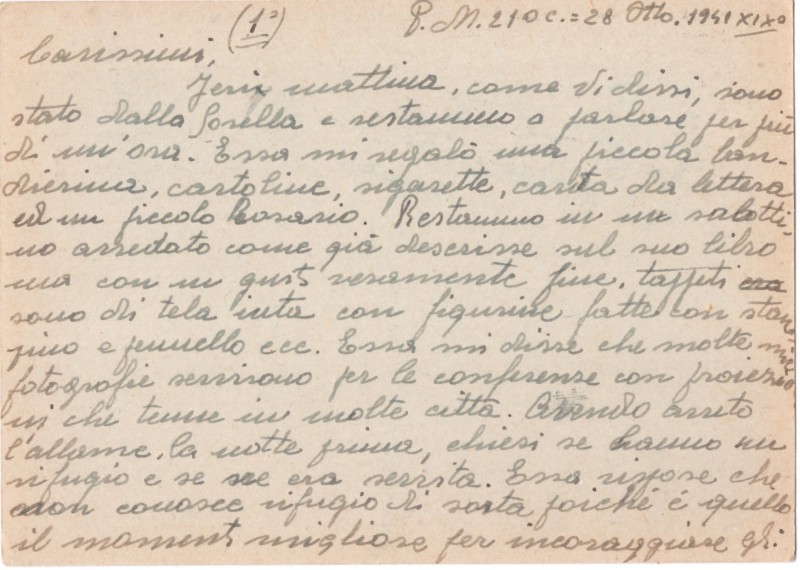 (1°)
P. M. 210 c. = 28 Otto. 1941 XIX°
Carissimi,
Jeri mattina, come Vi dissi, sono
stato dalla Sorella e restammo a parlare per più
di un'ora. Essa mi regalò una piccola ban-
dierina, cartoline, sigarette, carta da lettera
ed un piccolo Rosario. Restammo in un salotti-
no arredato come già descrisse sul suo libro
ma con un gusto veramente fine, tappeti
sono di tela iuta con figurine fatte con stam-
pino e pennello ecc. Essa mi disse che molte mie
fotografie servirono per le conferenze con proiezio
ni che tenne in molte città. Avendo avuto
l'allarme, la notte prima, chiesi se hanno un
rifugio e se se ne era servita. Essa rispose che
non conosce rifugio di sorta poiché é quello
il momento migliore per incoraggiare gli.